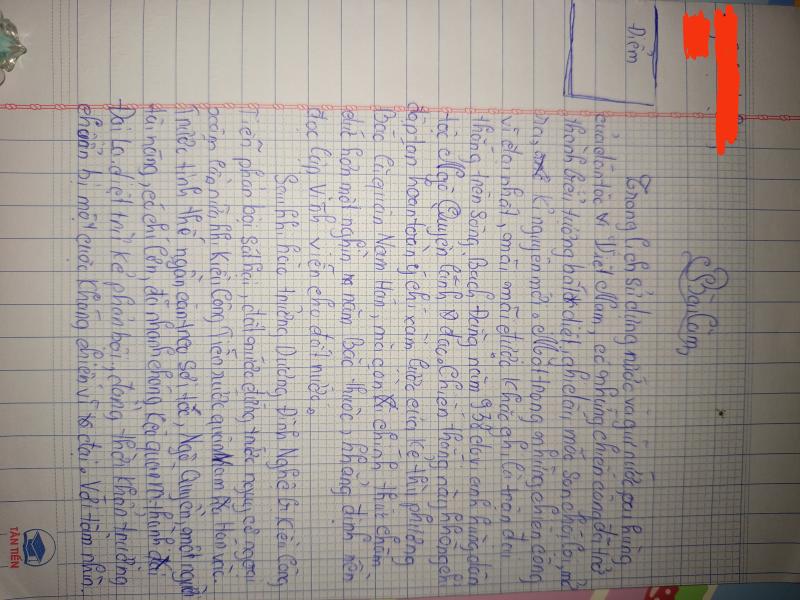 Điểm
Bài Làm
Trong lịch sử dựng nước và giữ nước oai hùng
của dân tộc Việt Nam, có những chiến công đã trở
thành biểu tượng bất diệt, chói lọi, mở
ra kỉ nguyên mới. Một trong những chiến công
vĩ đại nhất, mãi mãi được khắc ghi là trận đại
thắng trên sông Bạch Đằng năm 938 do vị anh hùng dân
tộc Ngô Quyền lãnh đạo. Chiến thắng này không chỉ
đập tan hoàn toàn ý chí xâm lược của kẻ thù phương
Bắc là quân Nam Hán, mà còn chính thức chấm
dứt hơn một nghìn năm Bắc thuộc, khẳng định nền
độc lập vĩnh viễn cho đất nước.
Sau khi hào trưởng Dương Đình Nghệ bị Kiều Công
Tiễn phản bội sát hại, đất nước đứng trước nguy cơ ngoại
xâm lần nữa khi Kiều Công Tiễn rước quân Nam Hán vào.
Trước tình thế ngàn cân treo sợi tóc, Ngô Quyền, một người
tài năng, có chí lớn, đã nhanh chóng kéo quân ra thành
Đại La diệt trừ kẻ phản bội, đồng thời khẩn trương
chuẩn bị một cuộc kháng chiến vĩ đại. Với tầm nhìn
TÂN TIẾN